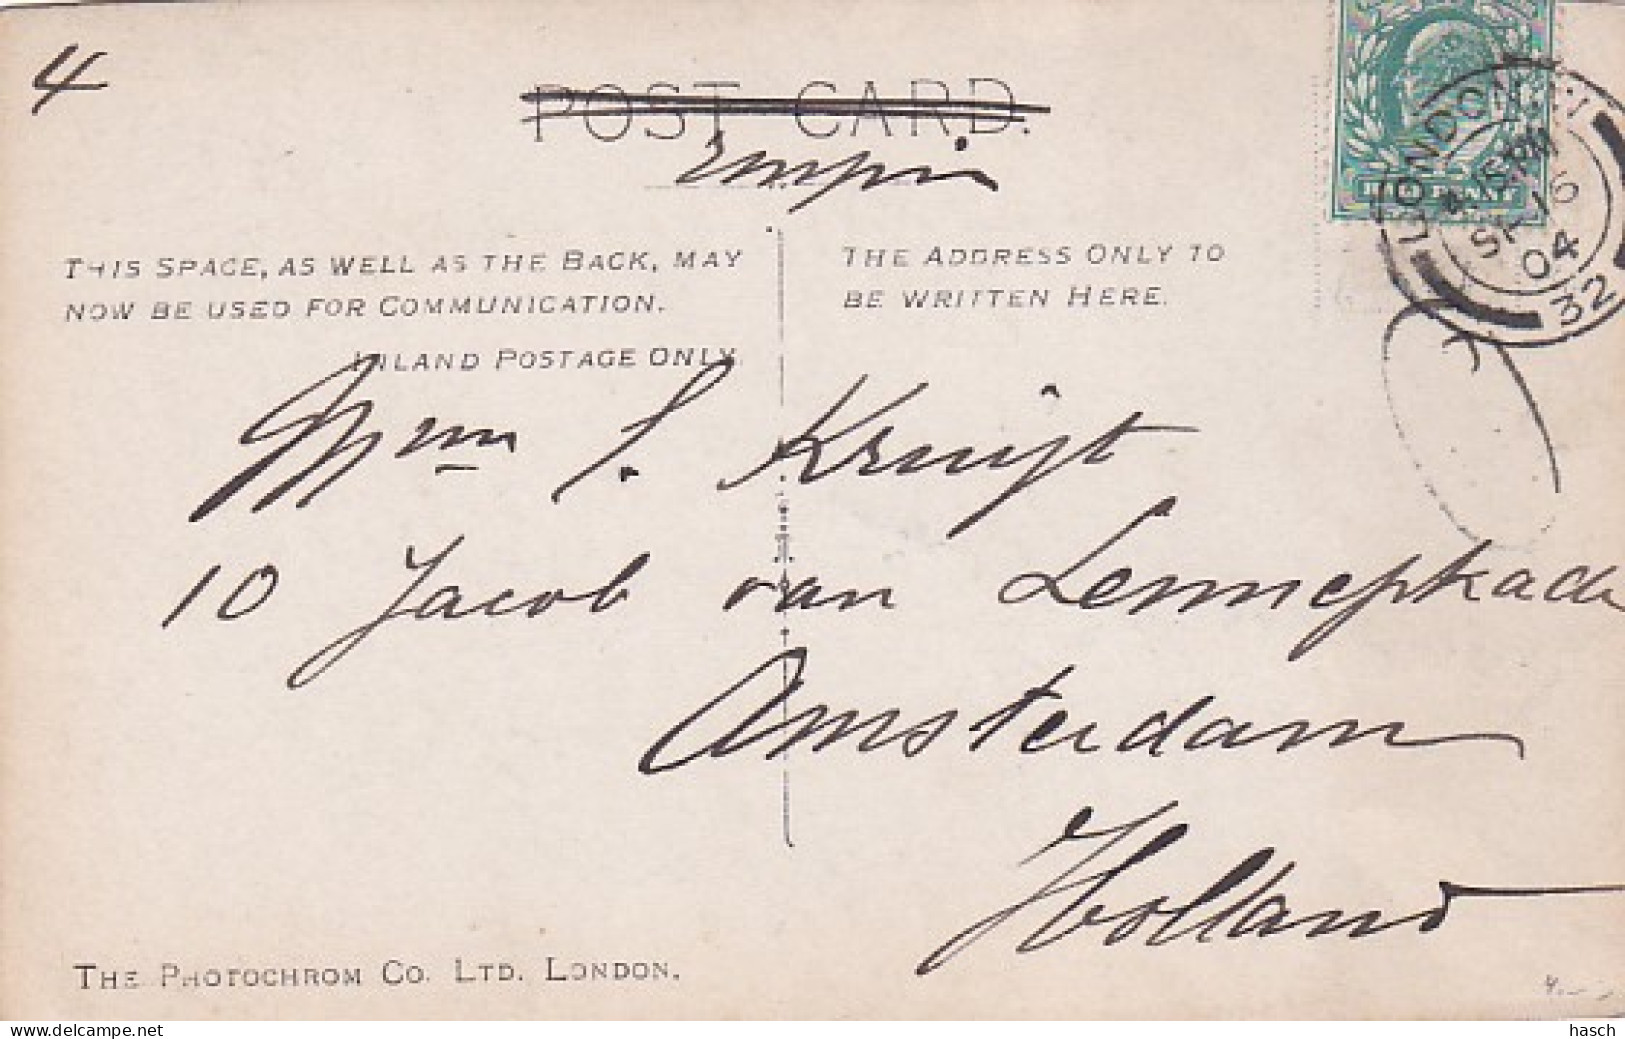 4
POST CARD.
HALF PENNY
LONDON
4.15PM
SP 16
04
32
THIS SPACE, AS WELL AS THE BACK, MAY
NOW BE USED FOR COMMUNICATION.
INLAND POSTAGE ONLY.
THE ADDRESS ONLY TO
BE WRITTEN HERE.
S. Kruijt
10 Jacob van Lennepkade
Amsterdam
Holland
THE PHOTOCHROM CO. LTD. LONDON.
hasch
Delcampe.net